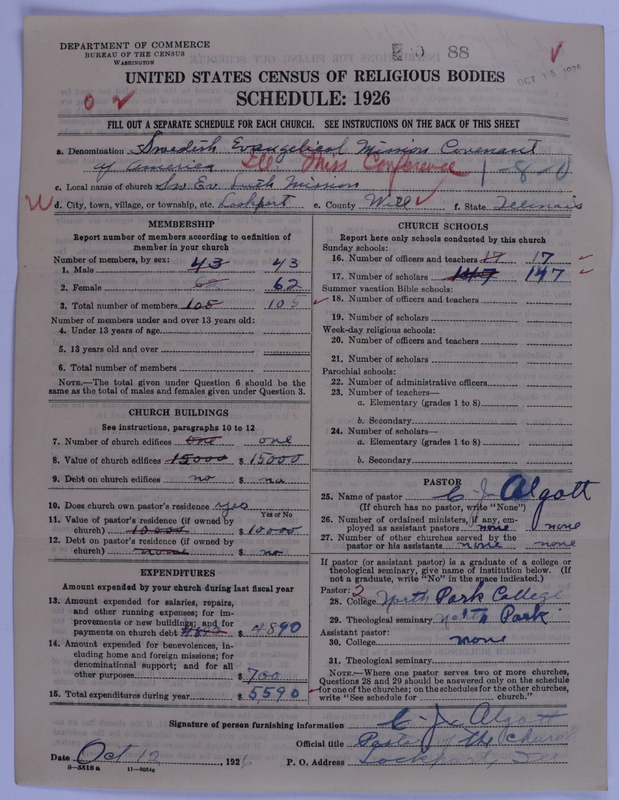 DEPARTMENT OF COMMERCE
BUREAU OF THE CENSUS
WASHINGTON
88
OCT 15 1926
UNITED STATES CENSUS OF RELIGIOUS BODIES
SCHEDULE: 1926
FILL OUT A SEPARATE SCHEDULE FOR EACH CHURCH. SEE INSTRUCTIONS ON THE BACK OF THIS SHEET
a. Denomination Swedish Evangelical Mission Covenant
of America Ill Miss Conference 1-8-0
c. Local name of church Sw Ev Luth Mission
d. City, town, village, or township, etc. Lockport e. County Will f. State Illinois
MEMBERSHIP
Report number of members according to definition of
member in your church
Number of members, by sex:
1. Male 43 43
2. Female 62 62
3. Total number of members 105 105
Number of members under and over 13 years old:
4. Under 13 years of age
5. 13 years old and over
6. Total number of members
NOTE.—The total given under Question 6 should be the
same as the total of males and females given under Question 3.
CHURCH BUILDINGS
See instructions, paragraphs 10 to 12
7. Number of church edifices one one
8. Value of church edifices 15000 $ 15000
9. Debt on church edifices no $ no
10. Does church own pastor's residence yes
Yes or No
11. Value of pastor's residence (if owned by
church) 10000 $ 10000
12. Debt on pastor's residence (if owned by
church) none $ no
EXPENDITURES
Amount expended by your church during last fiscal year
13. Amount expended for salaries, repairs,
and other running expenses; for im-
provements or new buildings; and for
payments on church debt $ 4890
14. Amount expended for benevolences, in-
cluding home and foreign missions; for
denominational support; and for all
other purposes $ 700
15. Total expenditures during year $ 5590
CHURCH SCHOOLS
Report here only schools conducted by this church
Sunday schools:
16. Number of officers and teachers 17 17
17. Number of scholars 147 147
Summer vacation Bible schools:
18. Number of officers and teachers
19. Number of scholars
Week-day religious schools:
20. Number of officers and teachers
21. Number of scholars
Parochial schools:
22. Number of administrative officers
23. Number of teachers—
a. Elementary (grades 1 to 8)
b. Secondary
24. Number of scholars—
a. Elementary (grades 1 to 8)
b. Secondary
PASTOR
25. Name of pastor C J Algott
(If church has no pastor, write "None")
26. Number of ordained ministers, if any, em-
ployed as assistant pastors none none
27. Number of other churches served by the
pastor or his assistants none none
If pastor (or assistant pastor) is a graduate of a college or
theological seminary, give name of institution below. (If
not a graduate, write "No" in the space indicated.)
Pastor:
28. College North Park College
29. Theological seminary North Park
Assistant pastor:
30. College none
31. Theological seminary
NOTE.—Where one pastor serves two or more churches,
Questions 28 and 29 should be answered only on the schedule
for one of the churches; on the schedules for the other churches,
write "See schedule for church."
Signature of person furnishing information C. J. Algott
Official title Pastor of the Church
Date Oct 12, 1926 P. O. Address Lockport, Ill
8-5518 a 11-9054g